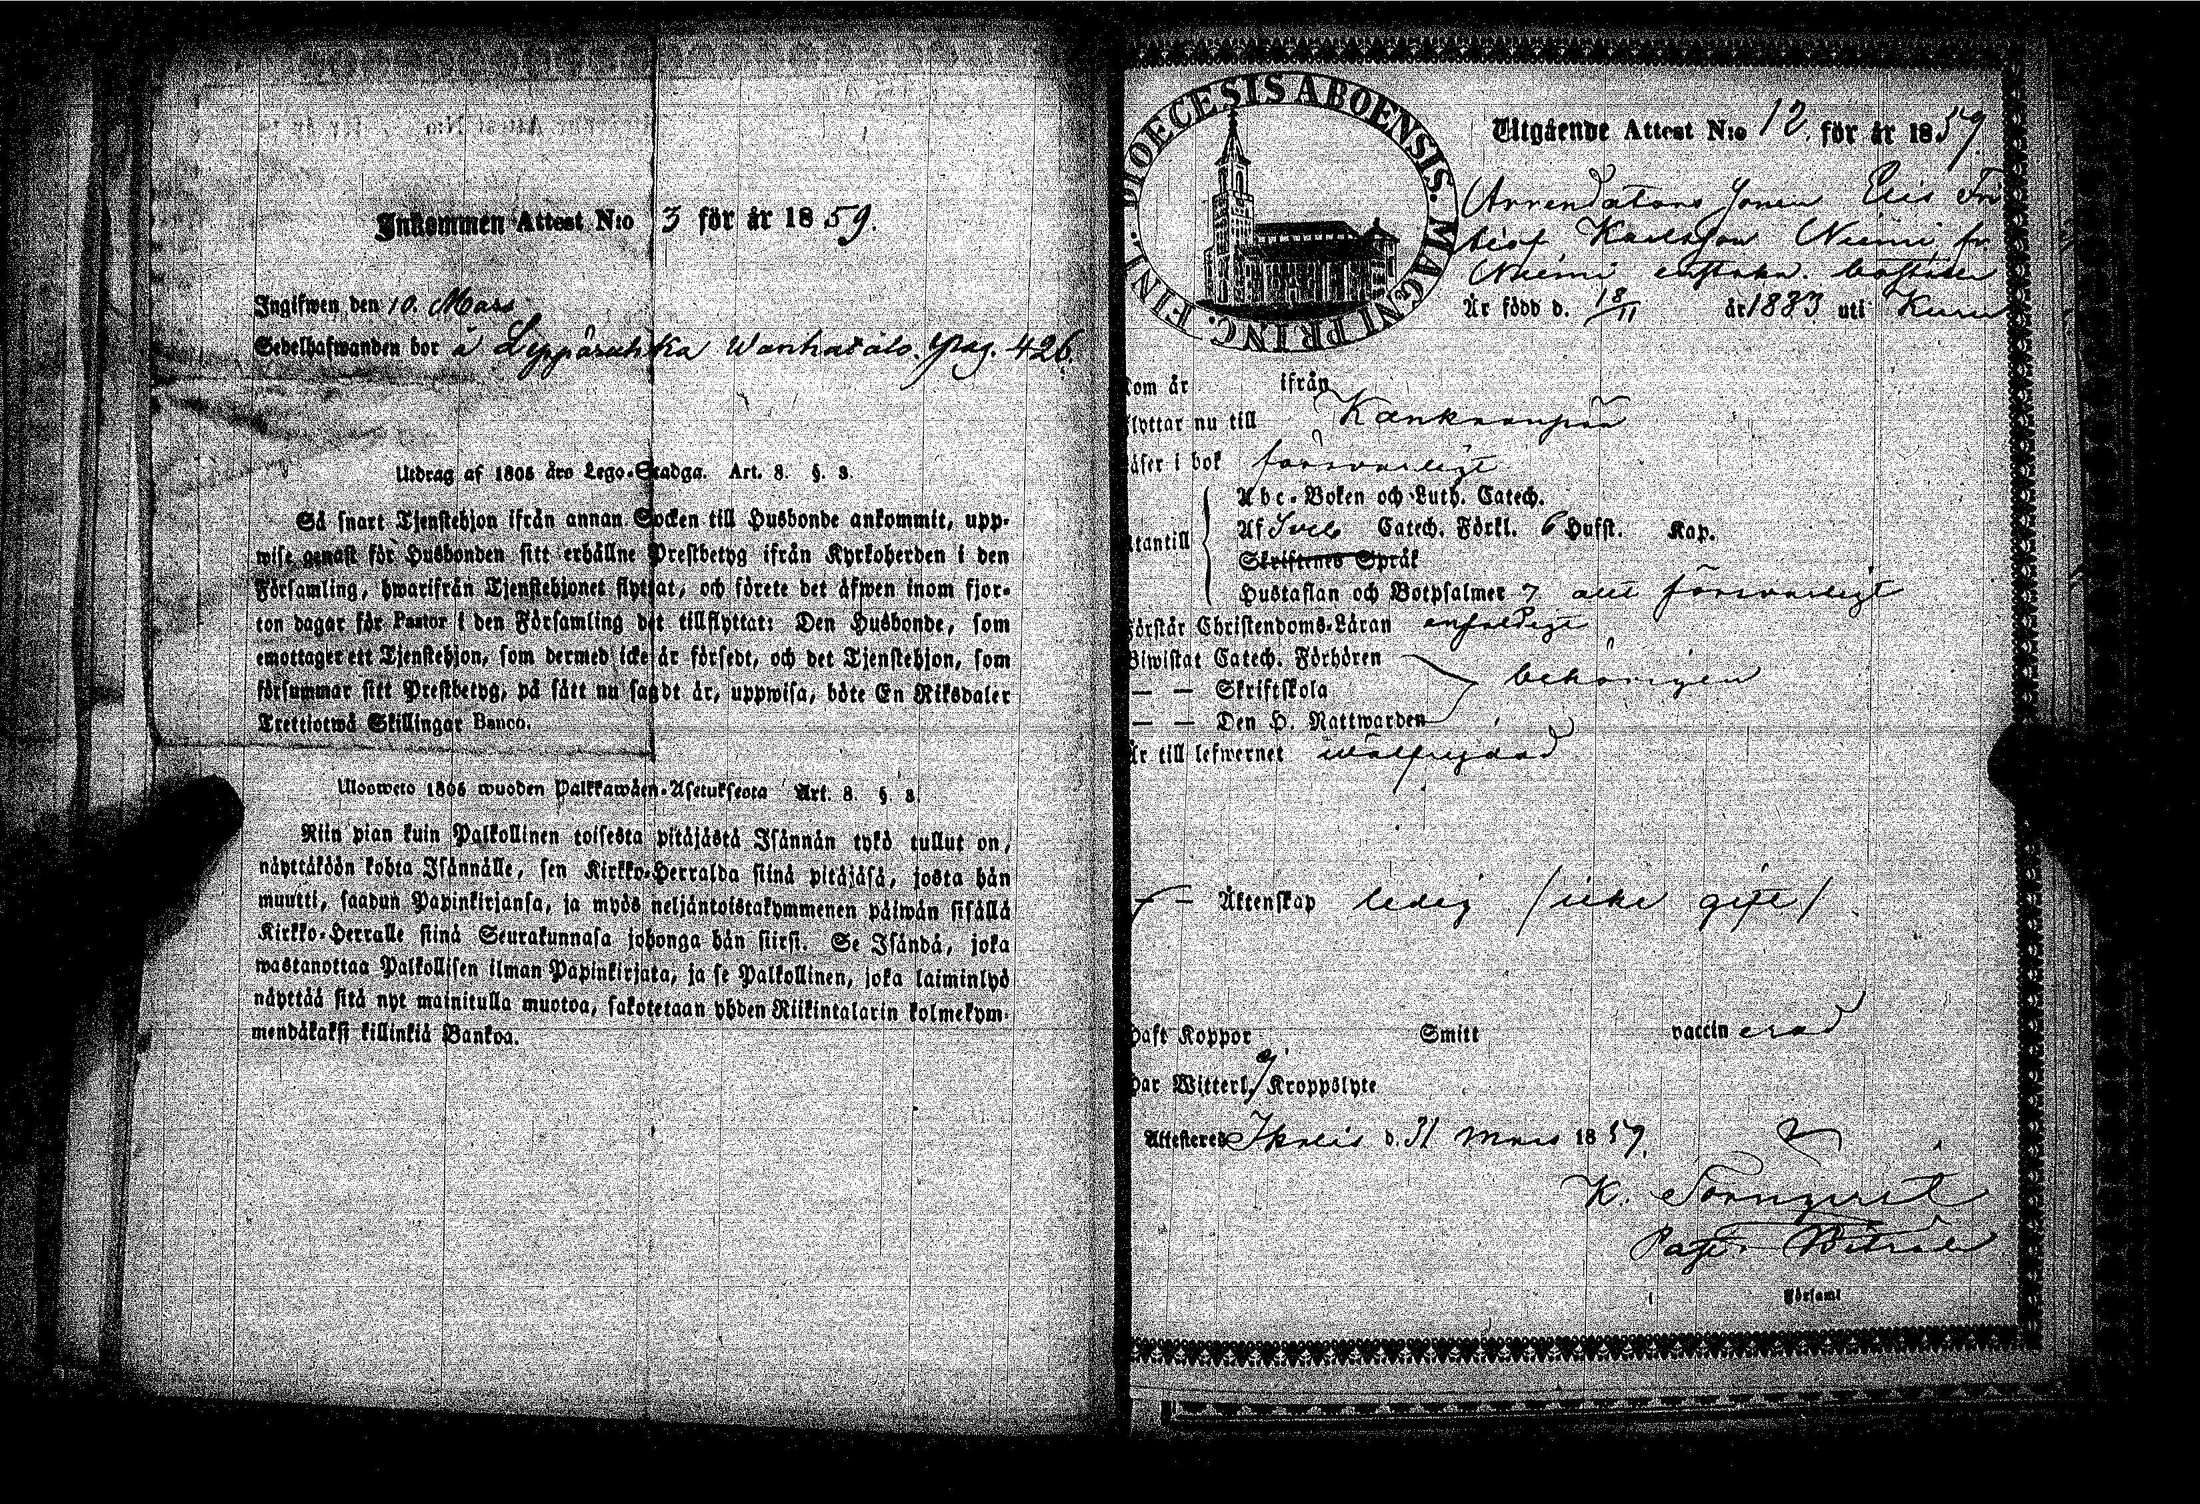 Inkommen Attest N:o 3 för år 1859.
Ingifwen den 10. Mars
Sedelhafwanden bor å Leppäsuhka Wanhatalo. pag. 426.
Utdrag af 1805 års Lego-Stadga. Art. 8. §. 3.
Så snart Tjenstehjon ifrån annan Socken till Husbonde ankommit, upp-
wise genast för Husbonden sitt erhållne Prestbetyg ifrån Kyrkoherden i den
Församling, hwarifrån Tjenstehjonet flyttat, och förete det äfwen inom fjor-
ton dagar för Pastor i den Församling det tillflyttat: Den Husbonde, som
emottager ett Tjenstehjon, som dermed icke är försedt, och det Tjenstehjon, som
försummar sitt Prestbetyg, på sätt nu sagdt är, uppwisa, böte En Riksdaler
Trettiotwå Skillingar Banco.
Ulosweto 1805 wuoden Palkkawäen-Asetuksesta Art. 8. §. 3.
Niin pian kuin Palkollinen toisesta pitäjästä Isännän tykö tullut on,
näyttäköön kohta Isännälle, sen Kirkko-Herralda siinä pitäjäsä, josta hän
muutti, saadun Papinkirjansa, ja myös neljäntoistakymmenen päiwän sisällä
Kirkko-Herralle siinä Seurakunnasa johonga hän siirsi. Se Isändä, joka
wastanottaa Palkollisen ilman Papinkirjata, ja se Palkollinen, joka laiminlyö
näyttää sitä nyt mainitulla muotoa, sakotetaan yhden Riikintalarin kolmekym-
mendäkaksi killinkiä Bankoa.
DIOECESIS ABOENSIS. MAGNI PRINC. FINL.
Utgående Attest N:o 12. för år 1859.
Arrendatorn Elis Fri
Karlsson Niemi fr
Niemi
Är född d. 18/11 år 1833 uti Kuru
kom år ifrån
flyttar nu till Kankaanpää
läser i bok försvarligt
Utantill
Abc-Boken och Luth. Catech.
Af Sveb Catech. Förkl. 6 Hufst. Kap.
Skriftenes Språk
Hustaflan och Botpsalmer 7 allt försvarligt
Förstår Christendoms-Läran enfaldigt
Biwistat Catech. Förhören
— — Skriftskola behörigen
— — Den H. Nattwarden
Är till lefwernet wälfrejdad
— — Äktenskap ledig (icke gift)
Haft Koppor Smitt vaccinerad
Har Witterl. ej Kroppslyte
Attesteres Ikalis d. 31 Mars 1859.
K. Törnqvist
Past. Biträde
i Församl